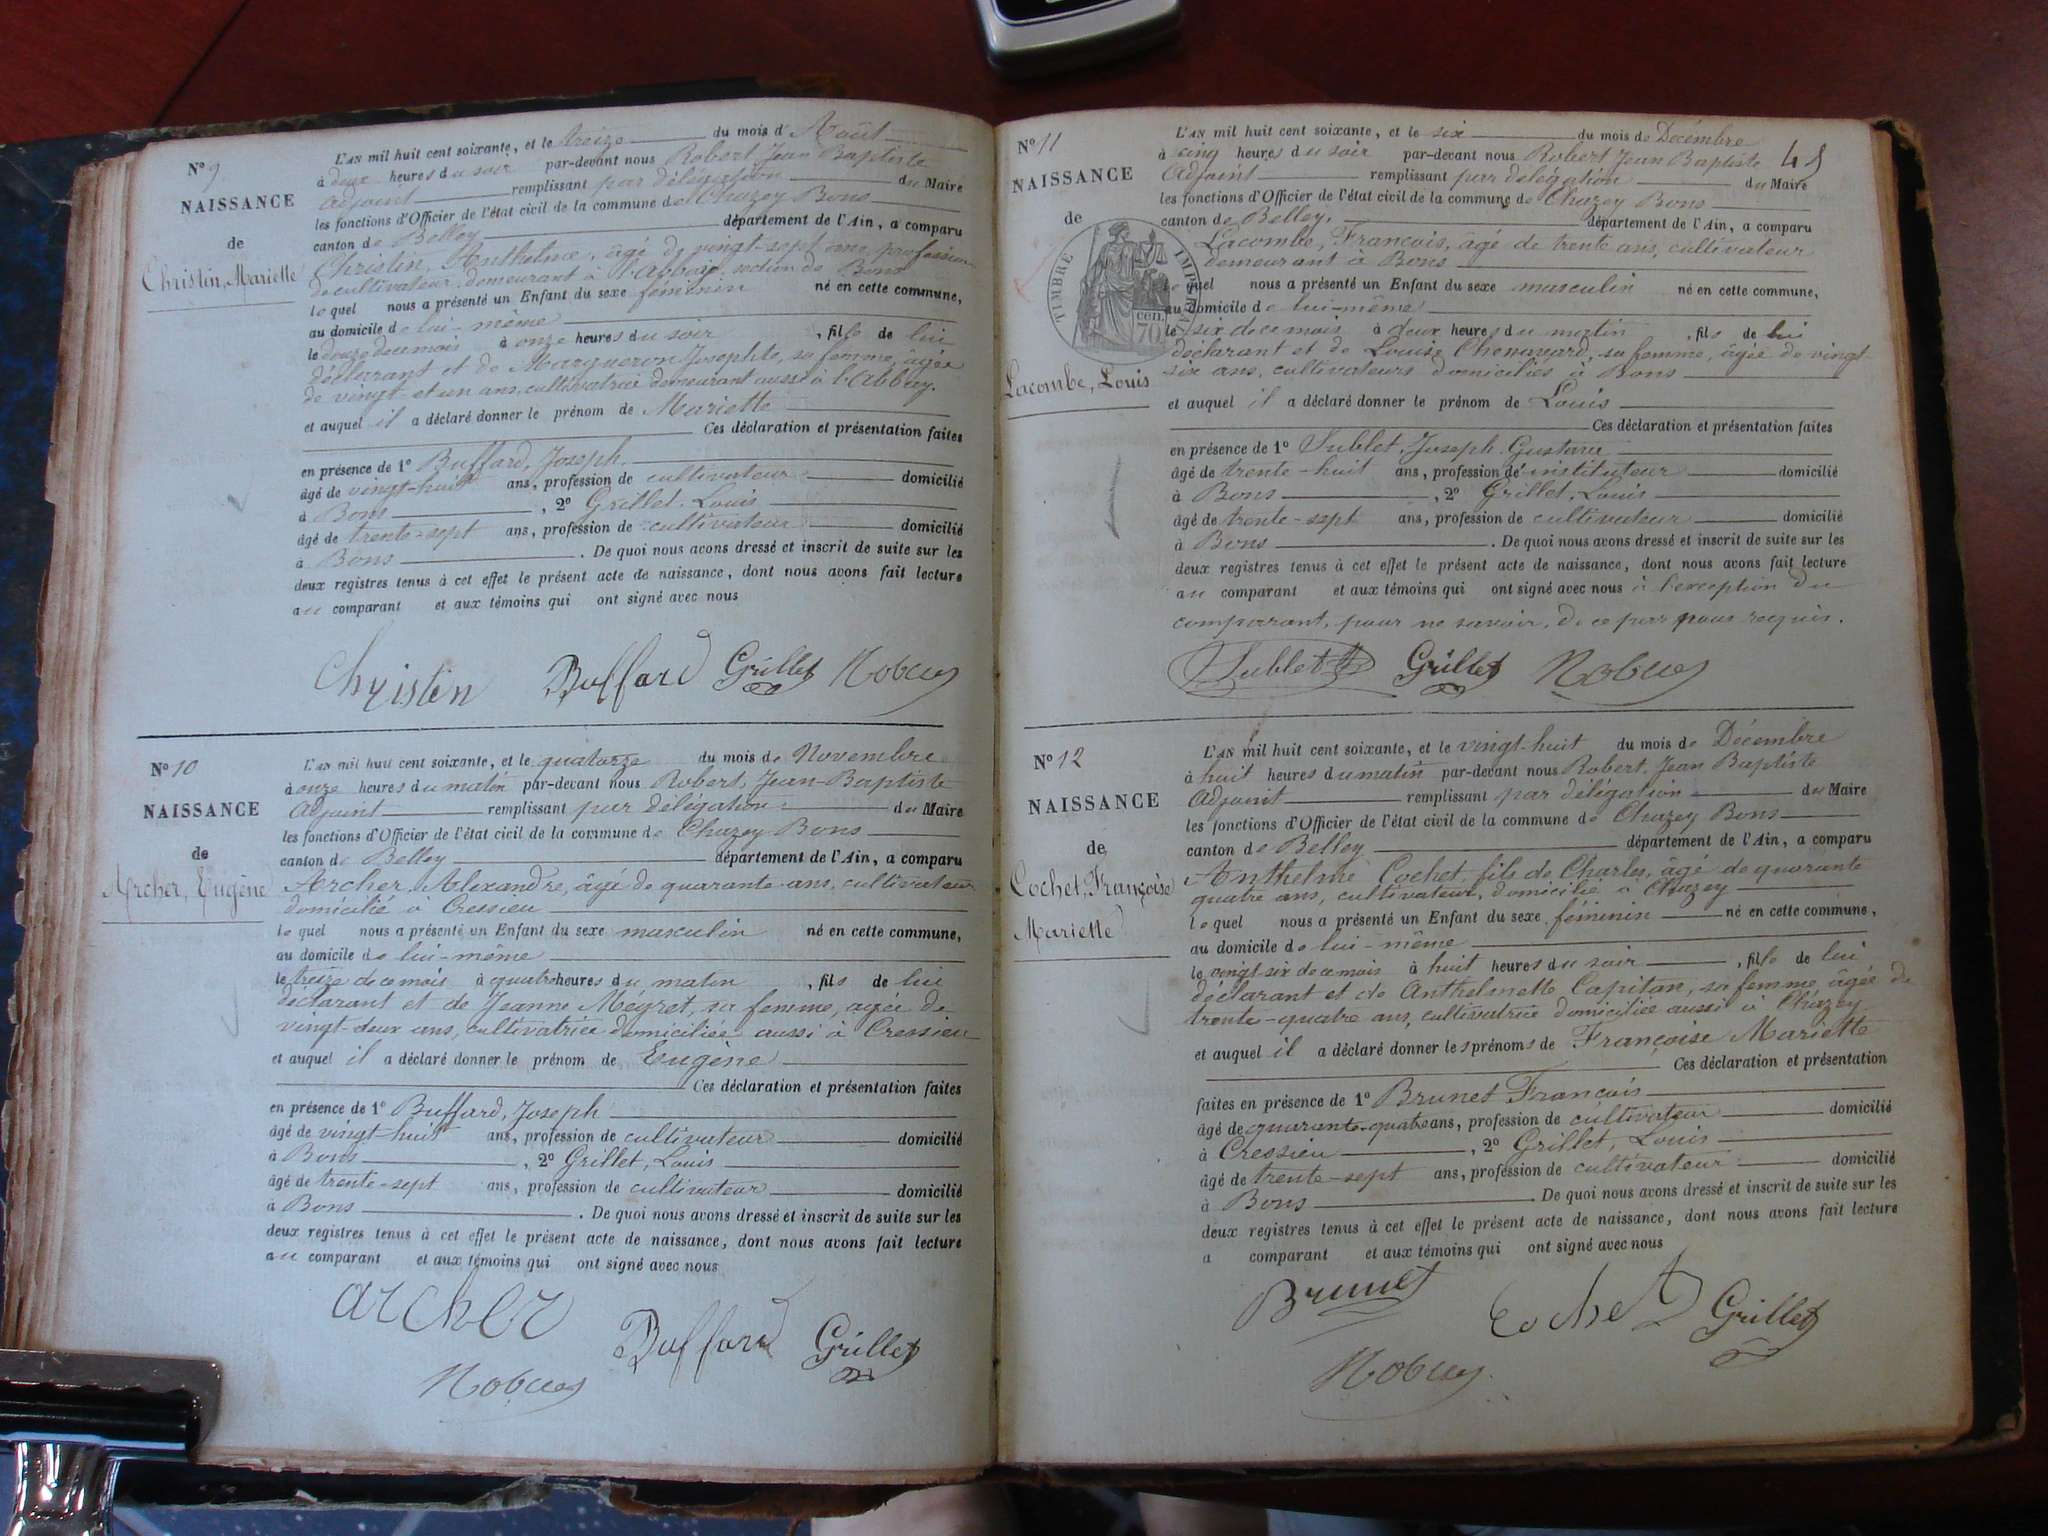 N° 9
NAISSANCE
de
Christin, Mariette
L'AN mil huit cent soixante, et le treize du mois d'Août
à deux heures du soir par-devant nous Robert Jean Baptiste
Adjoint remplissant par délégation du Maire
les fonctions d'Officier de l'état civil de la commune de Chazey Bons
canton de Belley département de l'Ain, a comparu
Christin, Anthelme, âgé de vingt-sept ans, profession
de cultivateur, demeurant à l'Abbaie, section de Bons
lequel nous a présenté un Enfant du sexe féminin né en cette commune,
au domicile de lui-même
le douze de ce mois à onze heures du soir, fille de lui
déclarant et de Josephte, sa femme, âgée
de vingt et un ans, cultivatrice demeurant aussi à l'Abbay.
et auquel il a déclaré donner le prénom de Mariette
Ces déclaration et présentation faites
en présence de 1° Buffard, Joseph
âgé de vingt-huit ans, profession de cultivateur domicilié
à Bons, 2° Grillet, Louis
âgé de trente-sept ans, profession de cultivateur domicilié
à Bons. De quoi nous avons dressé et inscrit de suite sur les
deux registres tenus à cet effet le présent acte de naissance, dont nous avons fait lecture
au comparant et aux témoins qui ont signé avec nous
Christin Buffard Grillet
N° 10
NAISSANCE
de
Archer, Eugène
L'AN mil huit cent soixante, et le quatorze du mois de Novembre
à onze heures du matin par-devant nous Robert, Jean-Baptiste
Adjoint remplissant par délégation du Maire
les fonctions d'Officier de l'état civil de la commune de Chazey Bons
canton de Belley département de l'Ain, a comparu
Archer, Alexandre, âgé de quarante ans, cultivateur
domicilié à Cressieu
lequel nous a présenté un Enfant du sexe masculin né en cette commune,
au domicile de lui-même
le treize de ce mois à quatre heures du matin, fils de lui
déclarant et de Jeanne Mégret, sa femme, agée de
vingt-deux ans, cultivatrice domiciliée aussi à Cressieu
et auquel il a déclaré donner le prénom de Eugène
Ces déclaration et présentation faites
en présence de 1° Buffard, Joseph
âgé de vingt-huit ans, profession de cultivateur domicilié
à Bons, 2° Grillet, Louis
âgé de trente-sept ans, profession de cultivateur domicilié
à Bons. De quoi nous avons dressé et inscrit de suite sur les
deux registres tenus à cet effet le présent acte de naissance, dont nous avons fait lecture
au comparant et aux témoins qui ont signé avec nous
archer
Buffard Grillet
N° 11
NAISSANCE
de
TIMBRE IMPÉRIAL
70 cen.
Lacombe, Louis
L'AN mil huit cent soixante, et le six du mois de Décembre
à cinq heures du soir par-devant nous Robert Jean Baptiste
Adjoint remplissant par délégation du Maire
les fonctions d'Officier de l'état civil de la commune de Chazey Bons
canton de Belley, département de l'Ain, a comparu
Lacombe, François, âgé de trente ans, cultivateur
demeurant à Bons
lequel nous a présenté un Enfant du sexe masculin né en cette commune,
au domicile de lui-même
le six de ce mois à deux heures du matin, fils de lui
déclarant et de Louise, sa femme, âgée de vingt
six ans, cultivateurs domiciliés à Bons
et auquel il a déclaré donner le prénom de Louis
Ces déclaration et présentation faites
en présence de 1° Sublet, Joseph Gustave
âgé de trente-huit ans, profession d'instituteur domicilié
à Bons, 2° Grillet, Louis
âgé de trente-sept ans, profession de cultivateur domicilié
à Bons. De quoi nous avons dressé et inscrit de suite sur les
deux registres tenus à cet effet le présent acte de naissance, dont nous avons fait lecture
au comparant et aux témoins qui ont signé avec nous à l'exception du
comparant, pour ne savoir, de ce par nous requis.
Sublet Grillet
N° 12
NAISSANCE
de
Cochet, Françoise
Mariette
L'AN mil huit cent soixante, et le vingt-huit du mois de Décembre
à huit heures du matin par-devant nous Robert, Jean Baptiste
Adjoint remplissant par délégation du Maire
les fonctions d'Officier de l'état civil de la commune de Chazey Bons
canton de Belley département de l'Ain, a comparu
Anthelme Cochet, fils de Charles, âgé de quarante
quatre ans, cultivateur, domicilié à Chazey
lequel nous a présenté un Enfant du sexe féminin né en cette commune,
au domicile de lui-même
le vingt-six de ce mois à huit heures du soir, fille de lui
déclarant et de Anthelmette Capitan, sa femme, âgée de
trente-quatre ans, cultivatrice domiciliée aussi à Chazey
et auquel il a déclaré donner les prénoms de Françoise Mariette
Ces déclaration et présentation
faites en présence de 1° Brunet François
âgé de quarante-quatre ans, profession de cultivateur domicilié
à Cressieu, 2° Grillet, Louis
âgé de trente-sept ans, profession de cultivateur domicilié
à Bons. De quoi nous avons dressé et inscrit de suite sur les
deux registres tenus à cet effet le présent acte de naissance, dont nous avons fait lecture
a comparant et aux témoins qui ont signé avec nous
Brunet Cochet Grillet